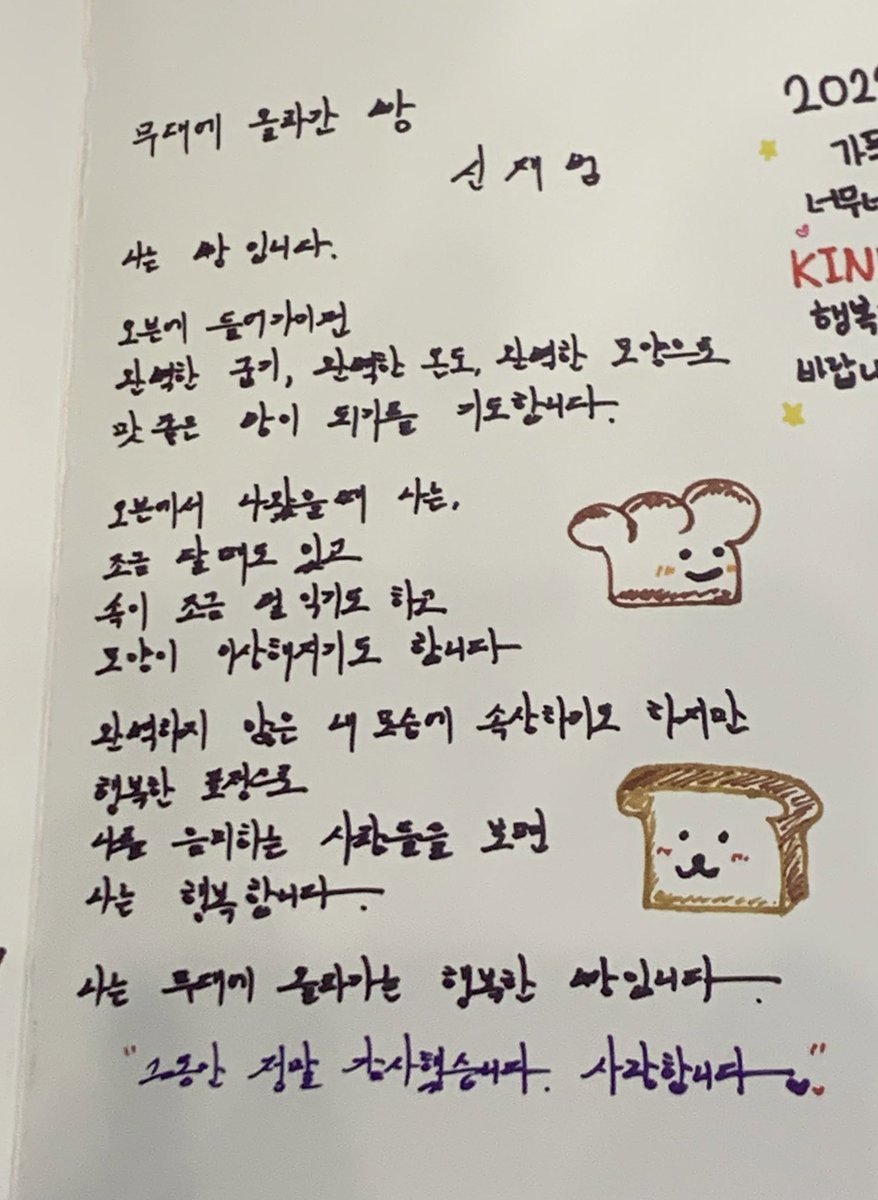 무대에 올라간 빵
신재범
나는 빵입니다.
오븐에 들어가기전
완벽한 굽기, 완벽한 온도, 완벽한 모양으로
맛 좋은 빵이 되기를 기도합니다.
오븐에서 나왔을때 나는,
조금 탈때도 있고
속이 조금 덜 익기도 하고
모양이 이상해지기도 합니다
완벽하지 않은 내 모습에 속상하기도 하지만
행복한 표정으로
나를 음미하는 사람들을 보면
나는 행복합니다.
나는 무대에 올라가는 행복한 빵입니다.
"그동안 정말 감사했습니다. 사랑합니다"
KIN
행복